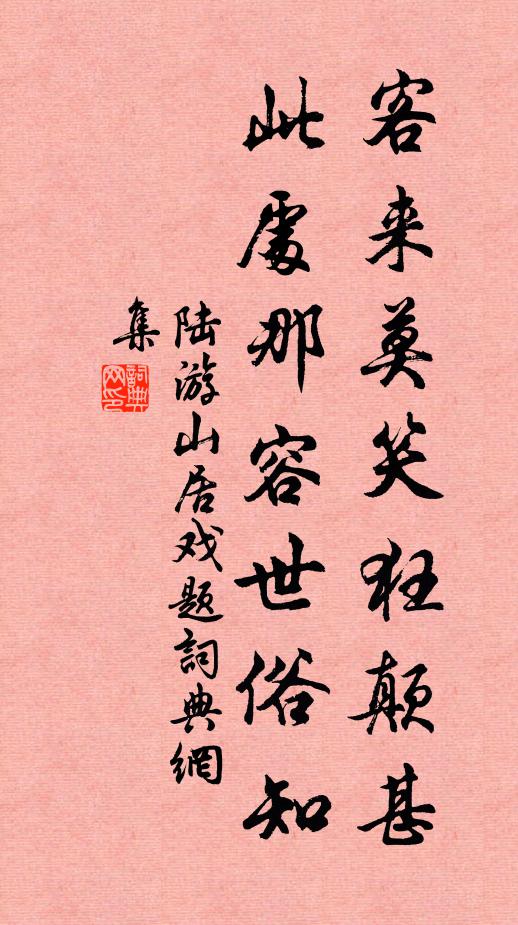 客来莫笑狂颠甚
此處那容世俗知
陆游山居戏题詞典網
集
詞典网印